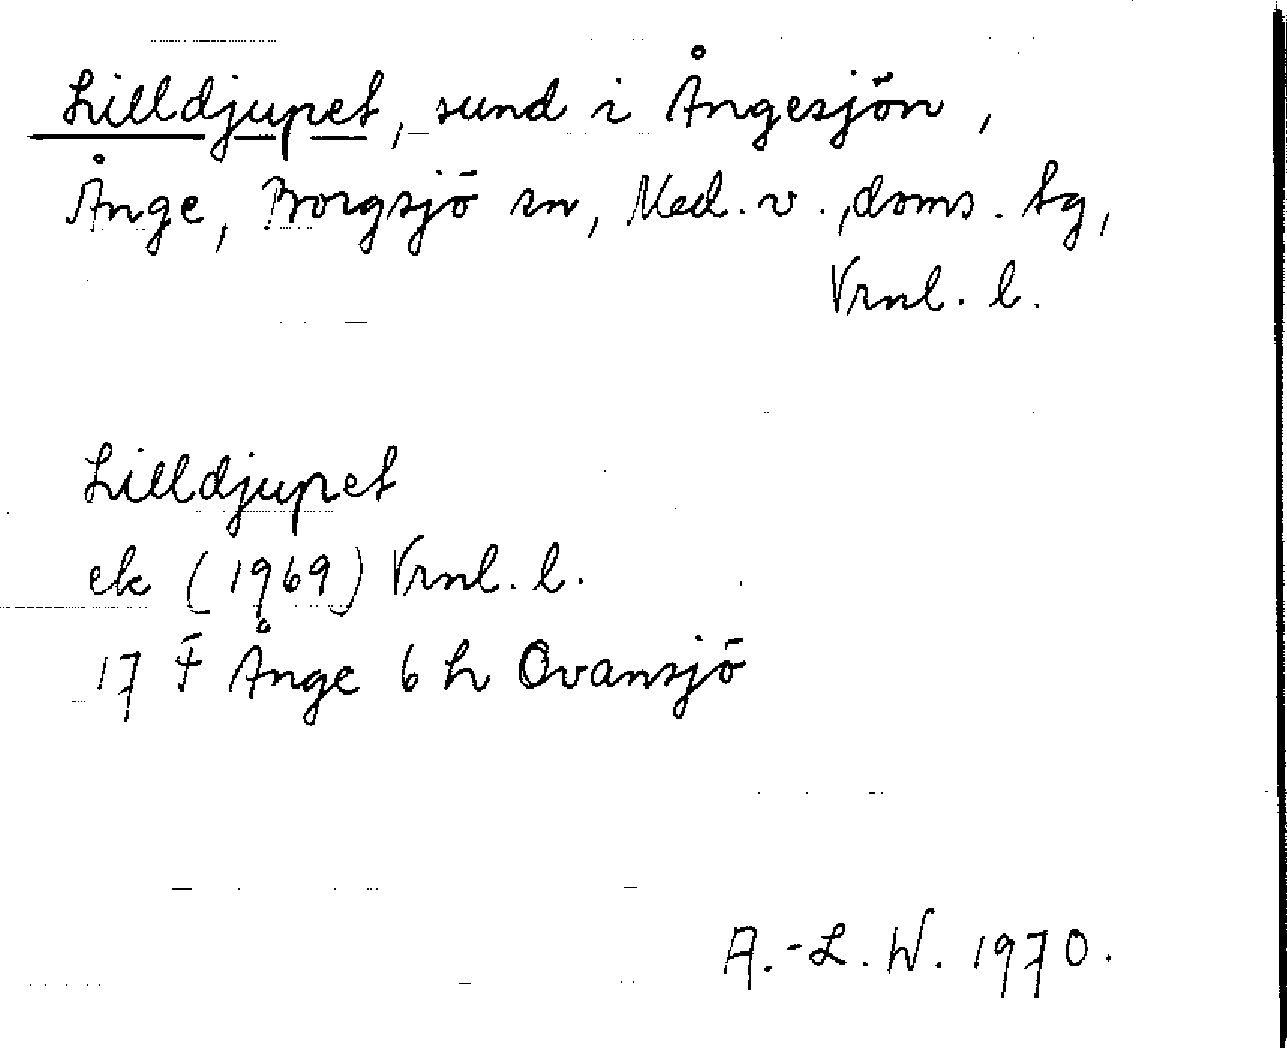 Lilldjupet, sund i Ångesjön,
Ånge, Borgsjö sn, Med. v., doms. tg,
Vrnl. l.
Lilldjupet
ek (1969) Vrnl. l.
17 F Ånge 6 h Ovansjö
A.-L. W. 1970.